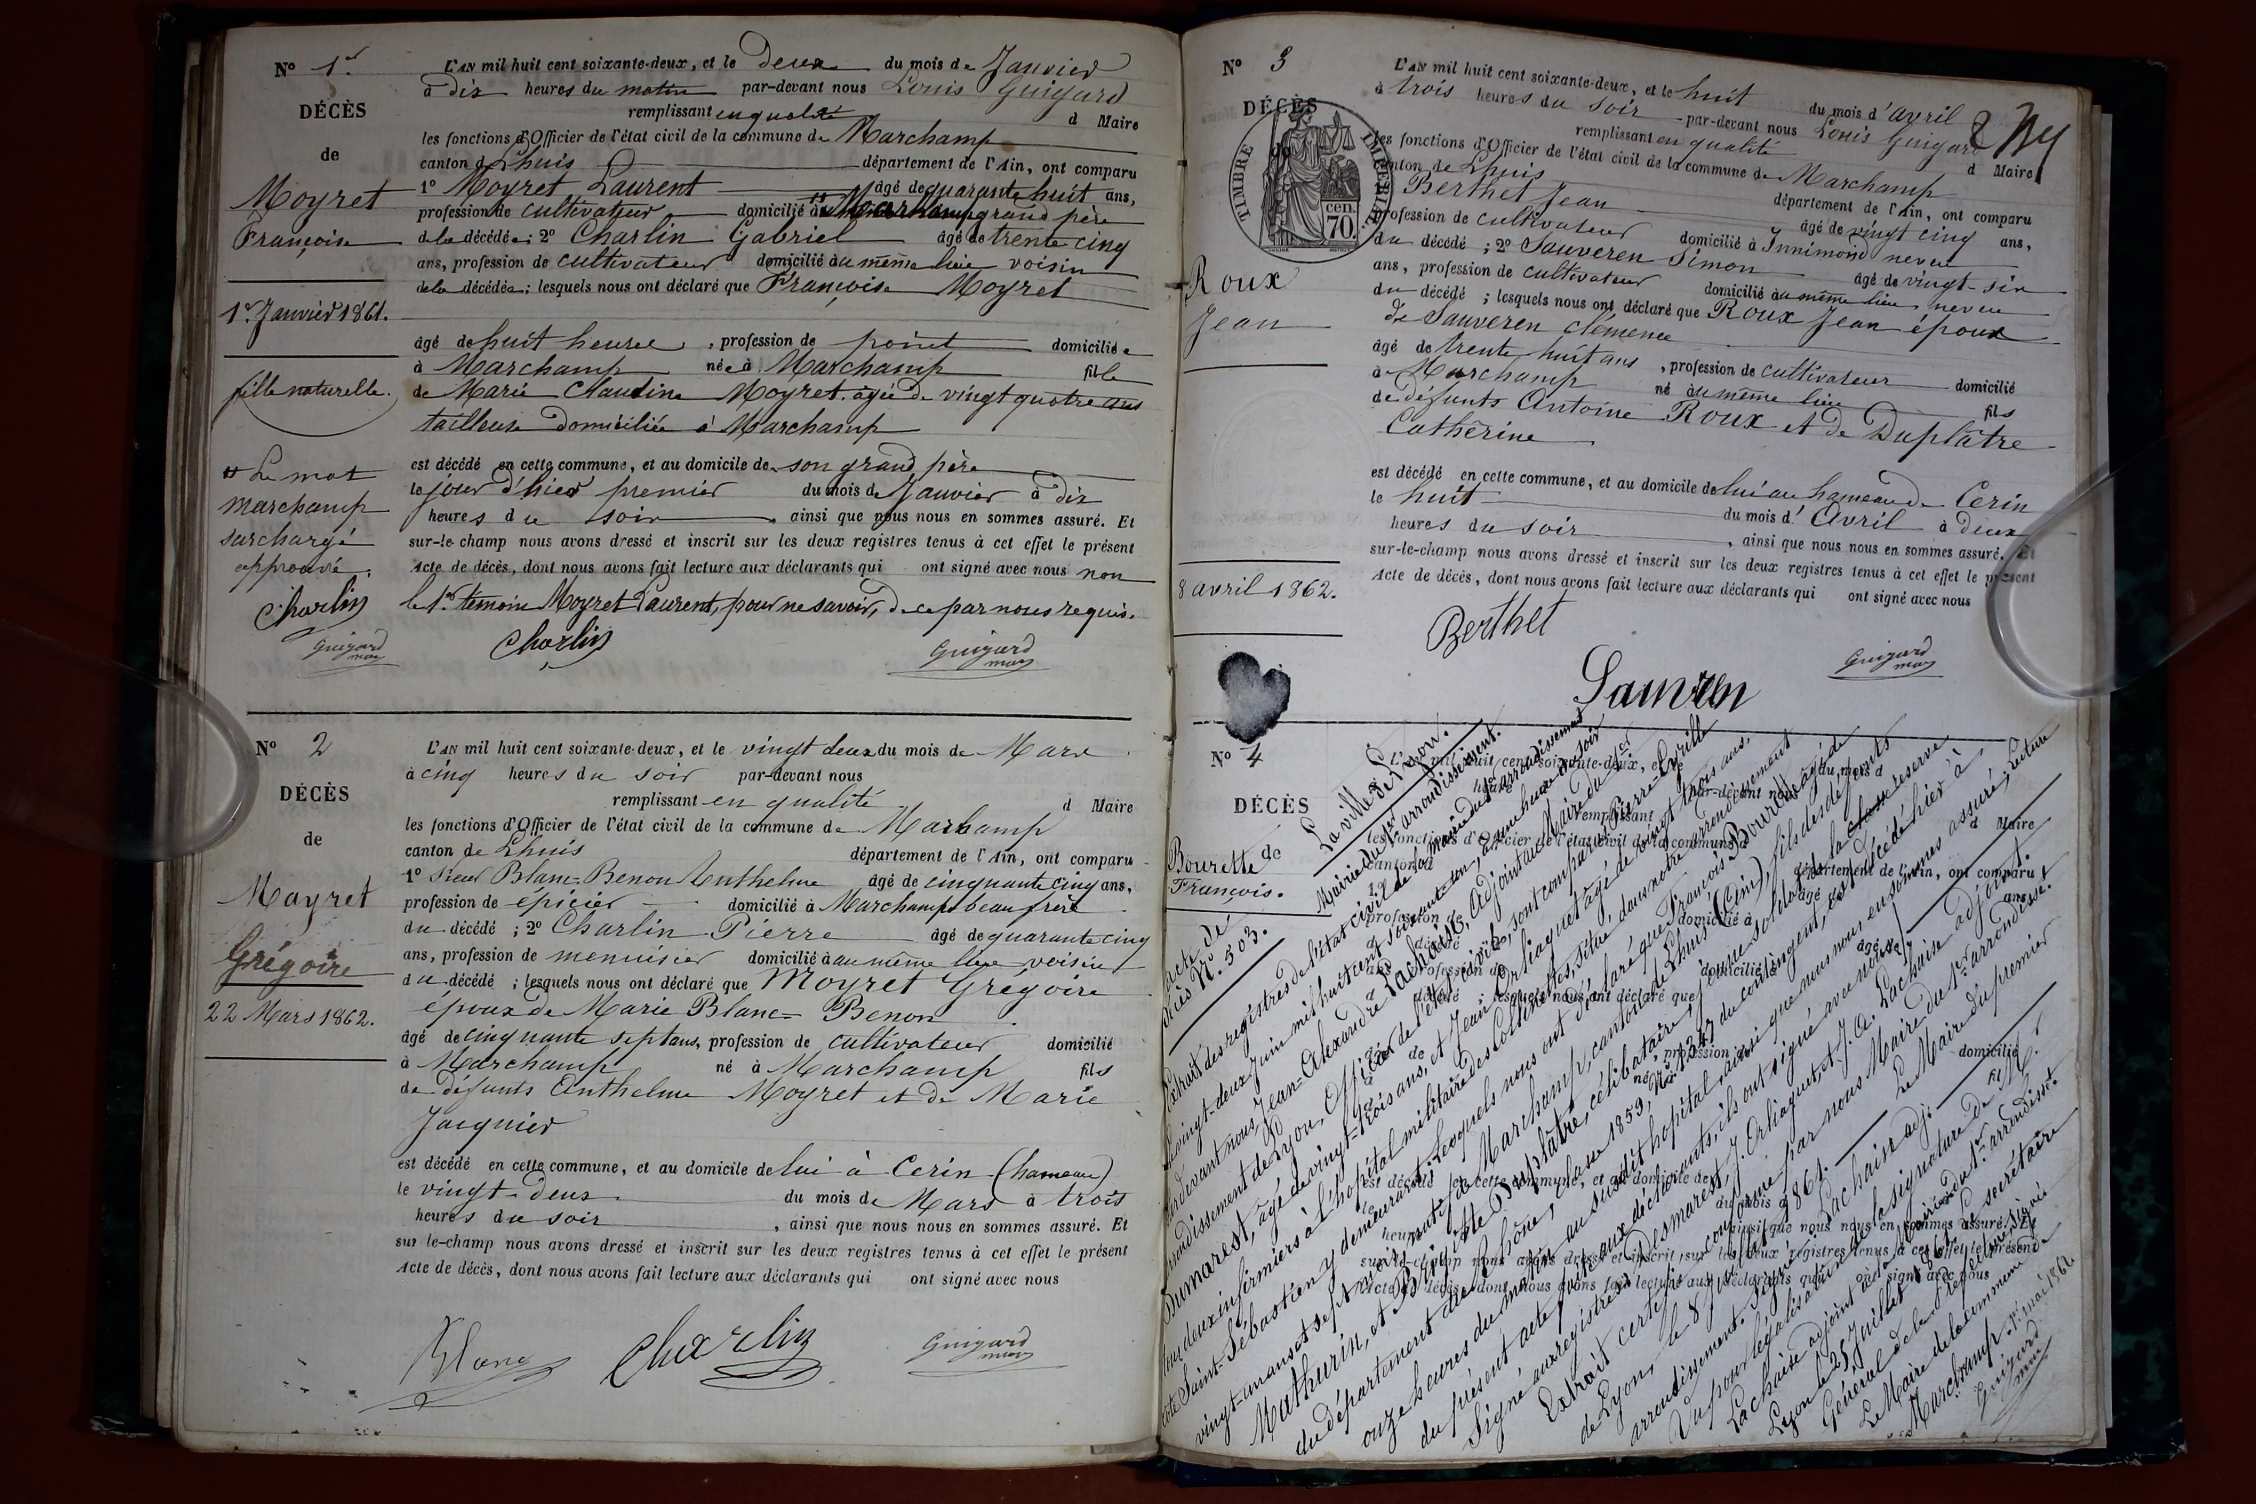 N° 1er
DÉCÈS
de
Moyret
Françoise
1er Janvier 1861.
fille naturelle.
Le mot
marchamp
surchargé
approuvé.
Charlin
Guigard
maire
L'AN mil huit cent soixante-deux, et le Deux du mois de Janvier
à dix heures du matin par-devant nous Louis Guigard
remplissant en qualité d Maire
les fonctions d'Officier de l'état civil de la commune de Marchamp
canton de Lhuis département de l'Ain, ont comparu
1° Moyret Laurent âgé de quarante huit ans,
profession de cultivateur domicilié à Marchamp grand père
de la décédée; 2° Charlin Gabriel âgé de trente cinq
ans, profession de cultivateur domicilié au même lieu voisin
de la décédée; lesquels nous ont déclaré que Françoise Moyret
âgé de huit heures, profession de point domiciliée
à Marchamp née à Marchamp fille
de Marie Claudine Moyret âgée de vingt quatre ans
tailleuse domiciliée à Marchamp
est décédé en cette commune, et au domicile de son grand père
le jour d'hier premier du mois de Janvier à dix
heures du soir, ainsi que nous nous en sommes assuré. Et
sur-le-champ nous avons dressé et inscrit sur les deux registres tenus à cet effet le présent
Acte de décès, dont nous avons fait lecture aux déclarants qui ont signé avec nous non
le 1er temoin Moyret Laurent, pour ne savoir, de ce par nous requis.
Charlin
Guigard
maire
N° 2
DÉCÈS
de
Mayret
Grégoire
22 Mars 1862.
L'AN mil huit cent soixante-deux, et le vingt deux du mois de Mars
à cinq heures du soir par-devant nous
remplissant en qualité d Maire
les fonctions d'Officier de l'état civil de la commune de Marchamp
canton de Lhuis département de l'Ain, ont comparu
1° Sieur Blanc-Benon Anthelme âgé de cinquante cinq ans,
profession de épicier domicilié à Marchamp beau frère
du décédé; 2° Charlin Pierre âgé de quarante cinq
ans, profession de menuisier domicilié à au même lieu voisin
du décédé; lesquels nous ont déclaré que Moyret Grégoire
époux de Marie Blanc-Benon
âgé de cinquante sept ans, profession de cultivateur domicilié
à Marchamp né à Marchamp fils
de défunts Anthelme Moyret et de Marie
Jacquier
est décédé en cette commune, et au domicile de lui à Cerin (hameau)
le vingt-deux du mois de Mars à trois
heures du soir, ainsi que nous nous en sommes assuré. Et
sur le-champ nous avons dressé et inscrit sur les deux registres tenus à cet effet le présent
Acte de décès, dont nous avons fait lecture aux déclarants qui ont signé avec nous
Blanc
Charlin
Guigard
maire
N° 3
DÉCÈS
TIMBRE IMPÉRIAL
70 cen.
Roux
Jean
8 avril 1862.
L'AN mil huit cent soixante-deux, et le huit du mois d'avril
à trois heures du soir par-devant nous Louis Guigard
remplissant en qualité d Maire
les fonctions d'Officier de l'état civil de la commune de Marchamp
canton de Lhuis département de l'Ain, ont comparu
Berthet Jean âgé de vingt cinq ans,
profession de cultivateur domicilié à Innimond neveu
du décédé; 2° Sauveren Simon âgé de vingt-six
ans, profession de cultivateur domicilié au même lieu neveu
du décédé; lesquels nous ont déclaré que Roux Jean époux
de Sauveren clémence
âgé de trente huit ans, profession de cultivateur domicilié
à Marchamp né au même lieu fils
de défunts Antoine Roux et de Duplâtre
Cathérine
est décédé en cette commune, et au domicile de lui au hameau de Cerin
le huit du mois d'Avril à deux
heures du soir, ainsi que nous nous en sommes assuré. Et
sur-le-champ nous avons dressé et inscrit sur les deux registres tenus à cet effet le présent
Acte de décès, dont nous avons fait lecture aux déclarants qui ont signé avec nous
Berthet
Sauveren
Guigard
maire
N° 4
DÉCÈS
de
Bourette
François.
acte de
décès N° 503.
La ville de Lyon.
Mairie du 1er arrondissement.
Extrait des registres de l'état civil de la mairie du 1er arrondissement
vingt-deux Juin mil huit cent soixante-un, à une heure du soir
pardevant nous, Jean-Alexandre Lachaise, Adjoint au Maire du 1er
arrondissement de Lyon, Officier de l'état civil, sont comparus Pierre-Cyrille
Dumarest, âgé de vingt-trois ans, et Jean Orliaguet âgé de vingt trois ans,
tous deux infirmiers à l'hôpital militaire des Collinettes, situé dans notre arrondissement
côte Saint-Sébastien y demeurant; lesquels nous ont déclaré que François Bourette âgé de
vingt-un ans et sept mois, natif de Marchamp, canton de Lhuis (Ain), fils des défunts
Mathurin, et Brigitte Duplâtre, célibataire, jeune soldat de la classe reserve
du département du Rhône, classe 1859, N° 1347 du contingent, est décédé hier à
onze heures du matin au susdit hopital, ainsi que nous nous en sommes assuré, lecture
du présent acte faite aux déclarants, ils ont signé avec nous.
Signé aux registres: Desmarest, J. Orliaguet, et J. A. Lachaise adjoint.
Extrait certifié conforme par nous Maire du 1er arrondisset.
de Lyon, le 8 Juillet 1861. Le Maire du premier
arrondissement. Signé Lachaise adj.
Vu pour légalisation de la signature de M.
Lachaise adjoint à la Mairie du 1er arrondisset.
Lyon le 25 Juillet 1861. Le secrétaire
Général de la Préfecture, signé
Le Maire de la commune de
Marchamp. 1er mai 1862
Guigard
maire
L'AN mil huit cent soixante-deux, et le du mois d